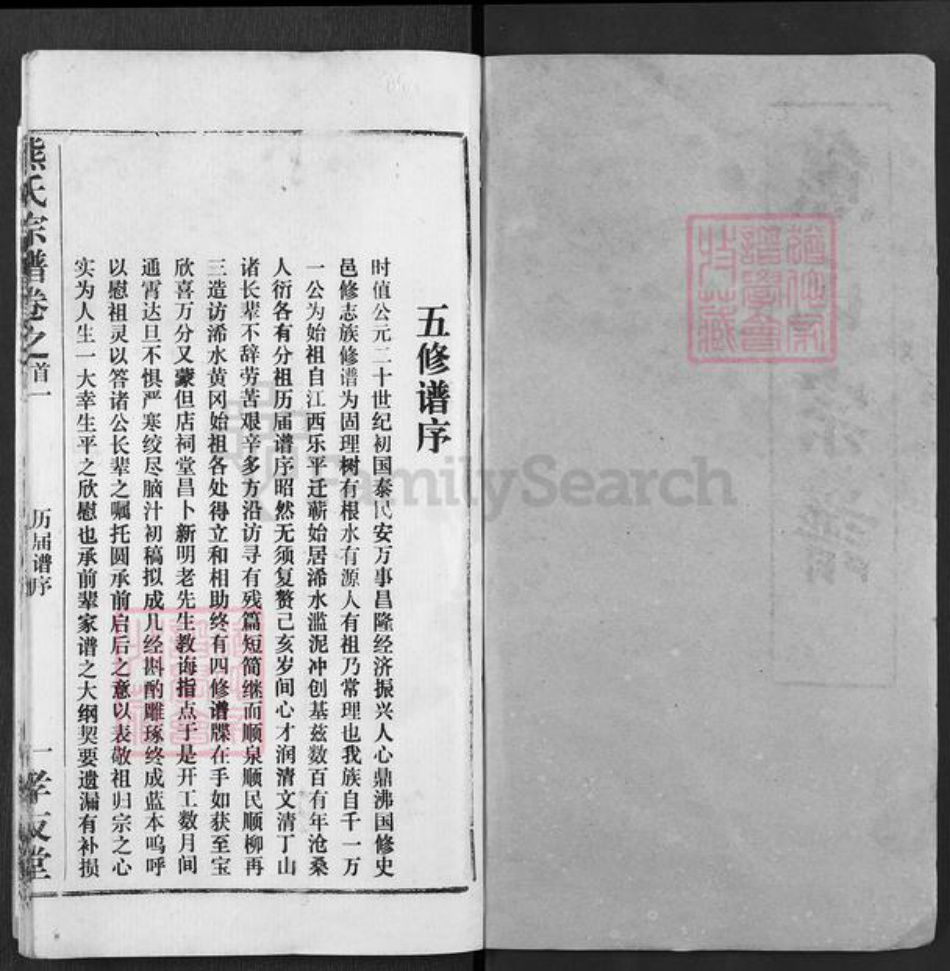 五修谱序
时值公元二十世纪初国泰民安万事昌隆经济振兴人心鼎沸国修史
邑修志族修谱为固理树有根水有源人有祖乃常理也我族自千一万
一公为始祖自江西乐平迁蕲始居浠水滥泥冲创基兹数百有年沧桑
人衍各有分祖历届谱序昭然无须复赘己亥岁间心才润清文清丁山
诸长辈不辞劳苦艰辛多方沿访寻有残篇短简继而顺泉顺民顺柳再
三造访浠水黄冈始祖各处得立和相助终有四修谱牒在手如获至宝
欣喜万分又蒙但店祠堂昌卜新明老先生教诲指点于是开工数月间
通霄达旦不惧严寒绞尽脑汁初稿拟成几经斟酌雕琢终成蓝本呜呼
以慰祖灵以答诸公长辈之嘱托圆承前启后之意以表敬祖归宗之心
实为人生一大幸生平之欣慰也承前辈家谱之大纲契要遗漏有补损
熊氏宗谱卷之首一
历届谱序
一
孝友堂
FamilySearch